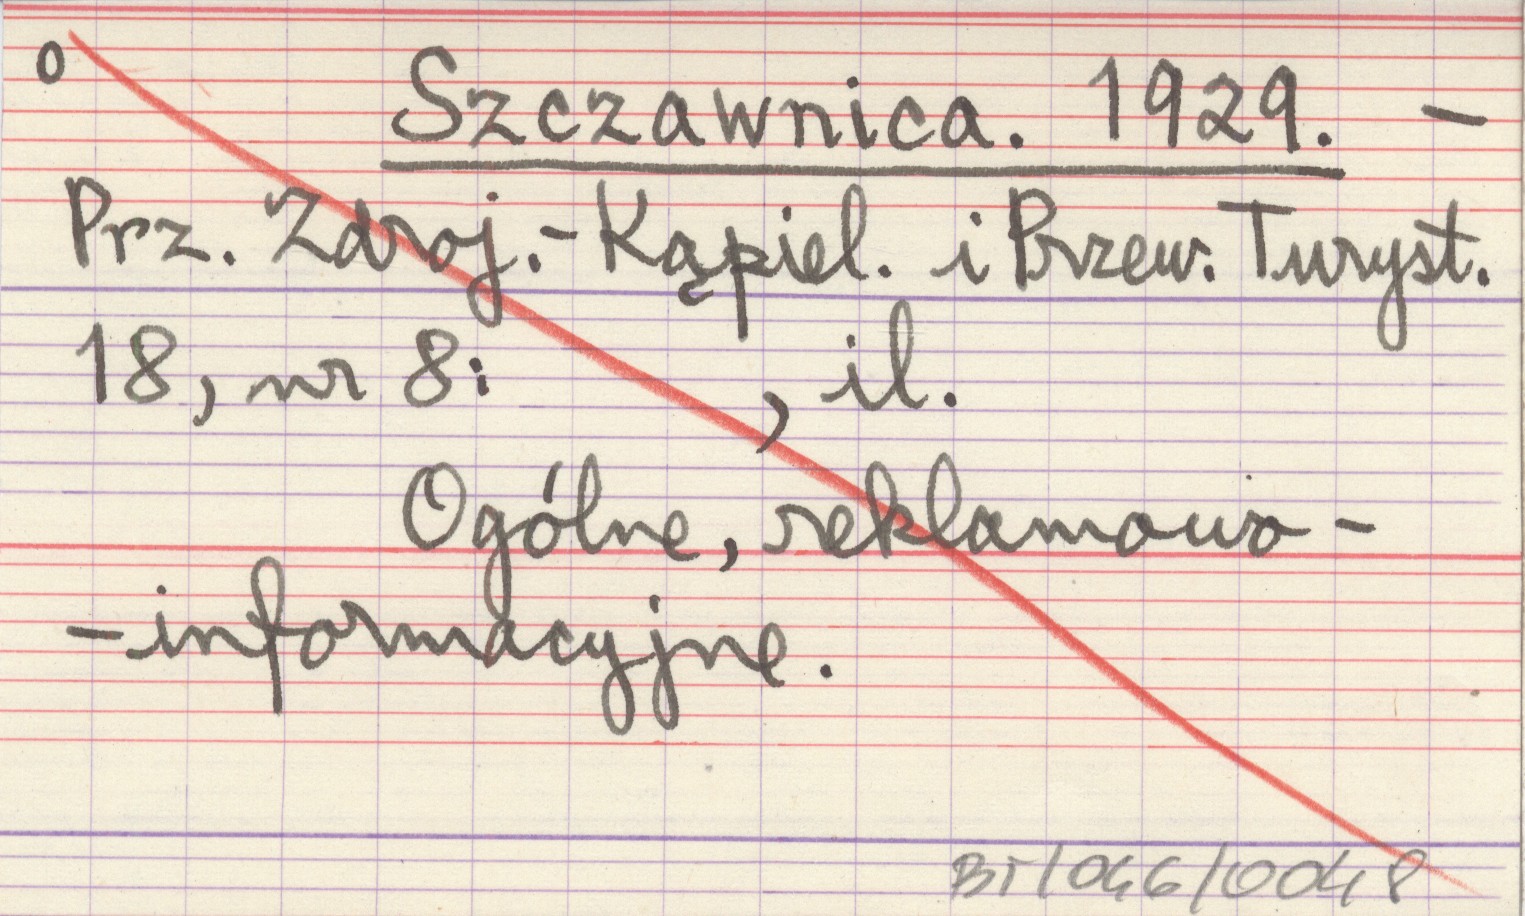 o
Szczawnica. 1929. -
Prz. Zdroj.-Kąpiel. i Przew. Turyst.
18, nr 8: , il.
Ogólne, reklamowo-
-informacyjne.
BT/046/0048